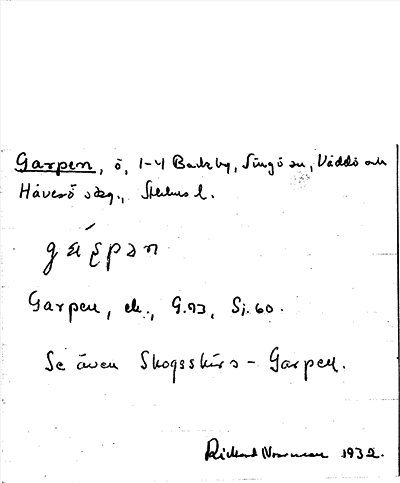 Garpen, ö, 1-4 Backby, Singö sn, Väddö och
Häverö skg., Sthlms l.
Garpen, ek., G.93, Sj. 60.
Se även Skogsskärs-Garpen.
Rickard Norrman 1932.